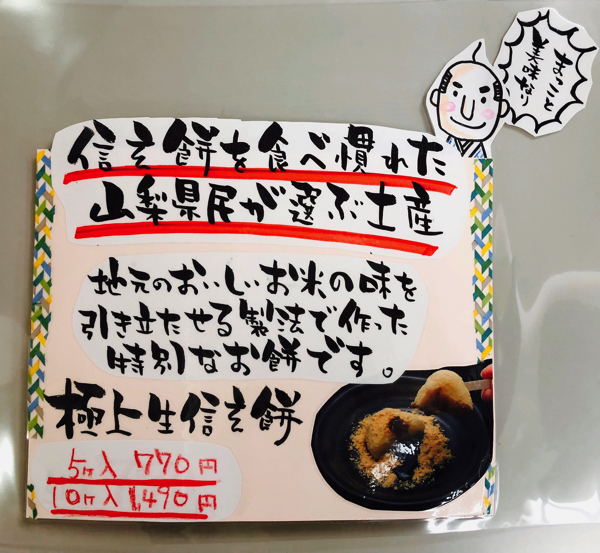 まっこと
美味なり
信玄餅を食べ慣れた
山梨県民が選ぶ土産
地元のおいしいお米の味を
引き立たせる製法で作った
特別なお餅です。
極上生信玄餅
5ヶ入 770円
10ヶ入 1,490円